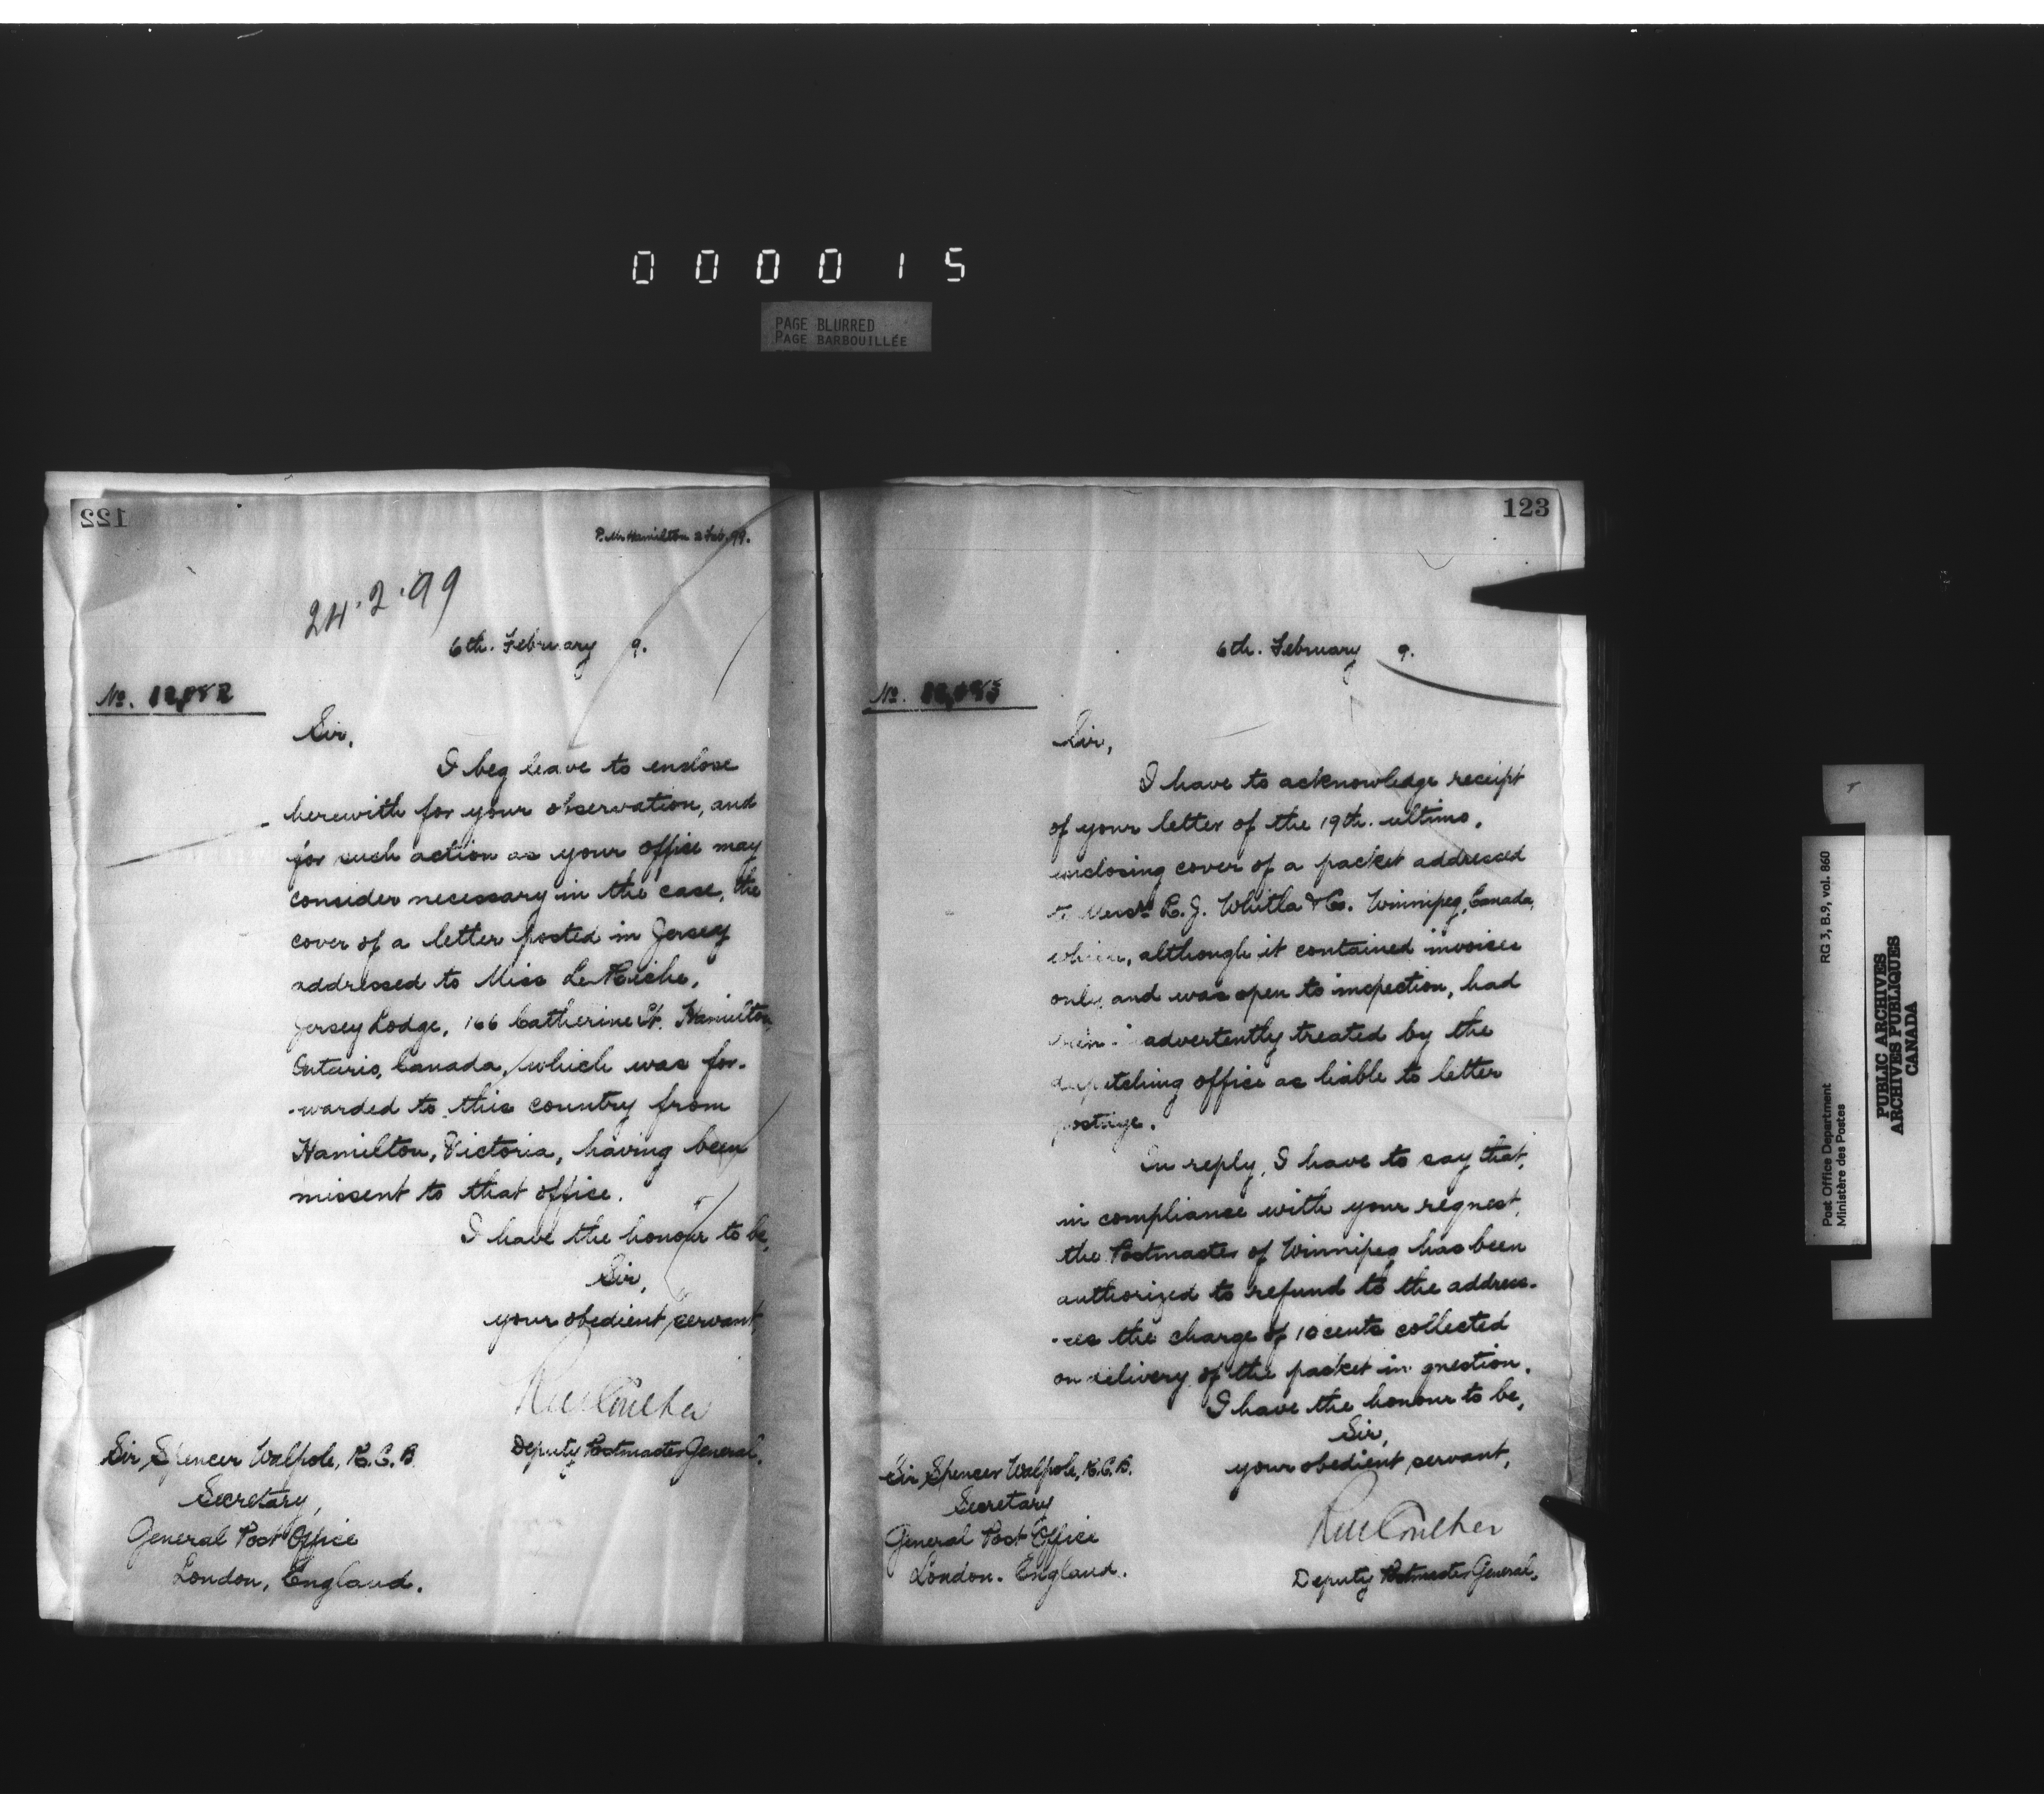 000015
PAGE BLURRED
PAGE BARBOUILLÉE
122
P. M. Hamilton 2 Feb. 99.
24.2.99
6th. February 9.
No. 12,082
Sir,
I beg leave to enclose
herewith for your observation, and
for such action as your office may
consider necessary in the case, the
cover of a letter posted in Jersey
addressed to Miss
Jersey Lodge, 166 Catherine St. Hamilton
Ontario, Canada, which was for-
-warded to this country from
Hamilton, Victoria, having been
missent to that office.
I have the honour to be,
Sir,
your obedient servant,
Deputy Postmaster General.
Sir Spencer Walpole, K.C.B.
Secretary,
General Post Office
London, England.
123
6th. February 9.
No.
Sir,
I have to acknowledge receipt
of your letter of the 19th. ultimo,
enclosing cover of a packet addressed
to Messrs R. J. Whitla & Co. Winnipeg, Canada,
which, although it contained invoices
only and was open to inspection, had
been advertently treated by the
despatching office as liable to letter
postage.
In reply, I have to say that,
in compliance with your request,
the Postmaster of Winnipeg has been
authorized to refund to the address-
-ees the charge of 10 cents collected
on delivery of the packet in question.
I have the honour to be,
Sir,
your obedient servant,
Deputy Postmaster General.
Sir Spencer Walpole, K.C.B.
Secretary
General Post Office
London. England.
Post Office Department RG 3, B.9, vol. 860
Ministère des Postes
PUBLIC ARCHIVES
ARCHIVES PUBLIQUES
CANADA